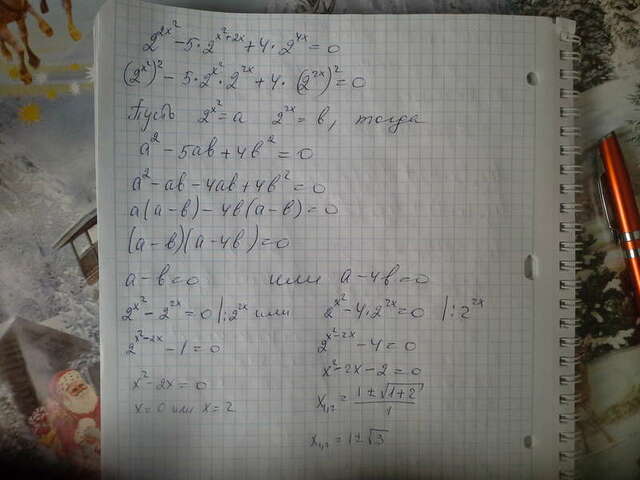 2^{2x^2} - 5·2^{x^2+2x} + 4·2^{4x} = 0
(2^{x^2})^2 - 5·2^{x^2}·2^{2x} + 4·(2^{2x})^2 = 0
Пусть 2^{x^2} = a 2^{2x} = в, тогда
a^2 - 5aв + 4в^2 = 0
a^2 - aв - 4aв + 4в^2 = 0
a(a-в) - 4в(a-в) = 0
(a-в)(a-4в) = 0
a-в=0 или a-4в=0
2^{x^2} - 2^{2x} = 0 |:2^{2x} или 2^{x^2} - 4·2^{2x} = 0 |:2^{2x}
2^{x^2-2x} - 1 = 0 2^{x^2-2x} - 4 = 0
x^2 - 2x = 0 x^2 - 2x - 2 = 0
x=0 или x=2 x_{1,2} = \frac{1±\sqrt{1+2}}{1}
x_{1,2} = 1±\sqrt{3}